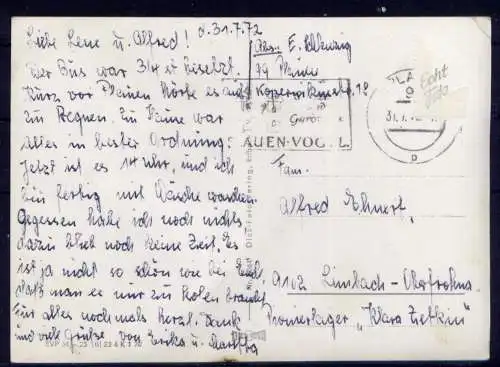 Liebe Lene u. Alfred! d. 31.7.72
Der Bus war 3/4 besetzt.
Kurz vor Plauen hörte es auf
zu Regnen. Zu Hause war
alles in bester Ordnung.
Jetzt ist es 14 Uhr, und ich
bin fertig mit Wäsche waschen.
Gegessen habe ich noch nichts
dazu blieb noch keine Zeit. Es
ist ja nicht so schön wie bei Euch,
daß man es nur zu holen braucht
Für alles nochmals herzl. Dank
und viele Grüße von Erika u. Martha
Abs. E.
99 Plauen
Kopernikusstr. 18
AUEN-VOGTL.
31.7.
Echt
Foto
Fam.
Alfred Ehnert.
9102 Limbach-Oberfrohna
Pionierlager "Klara Zetkin"